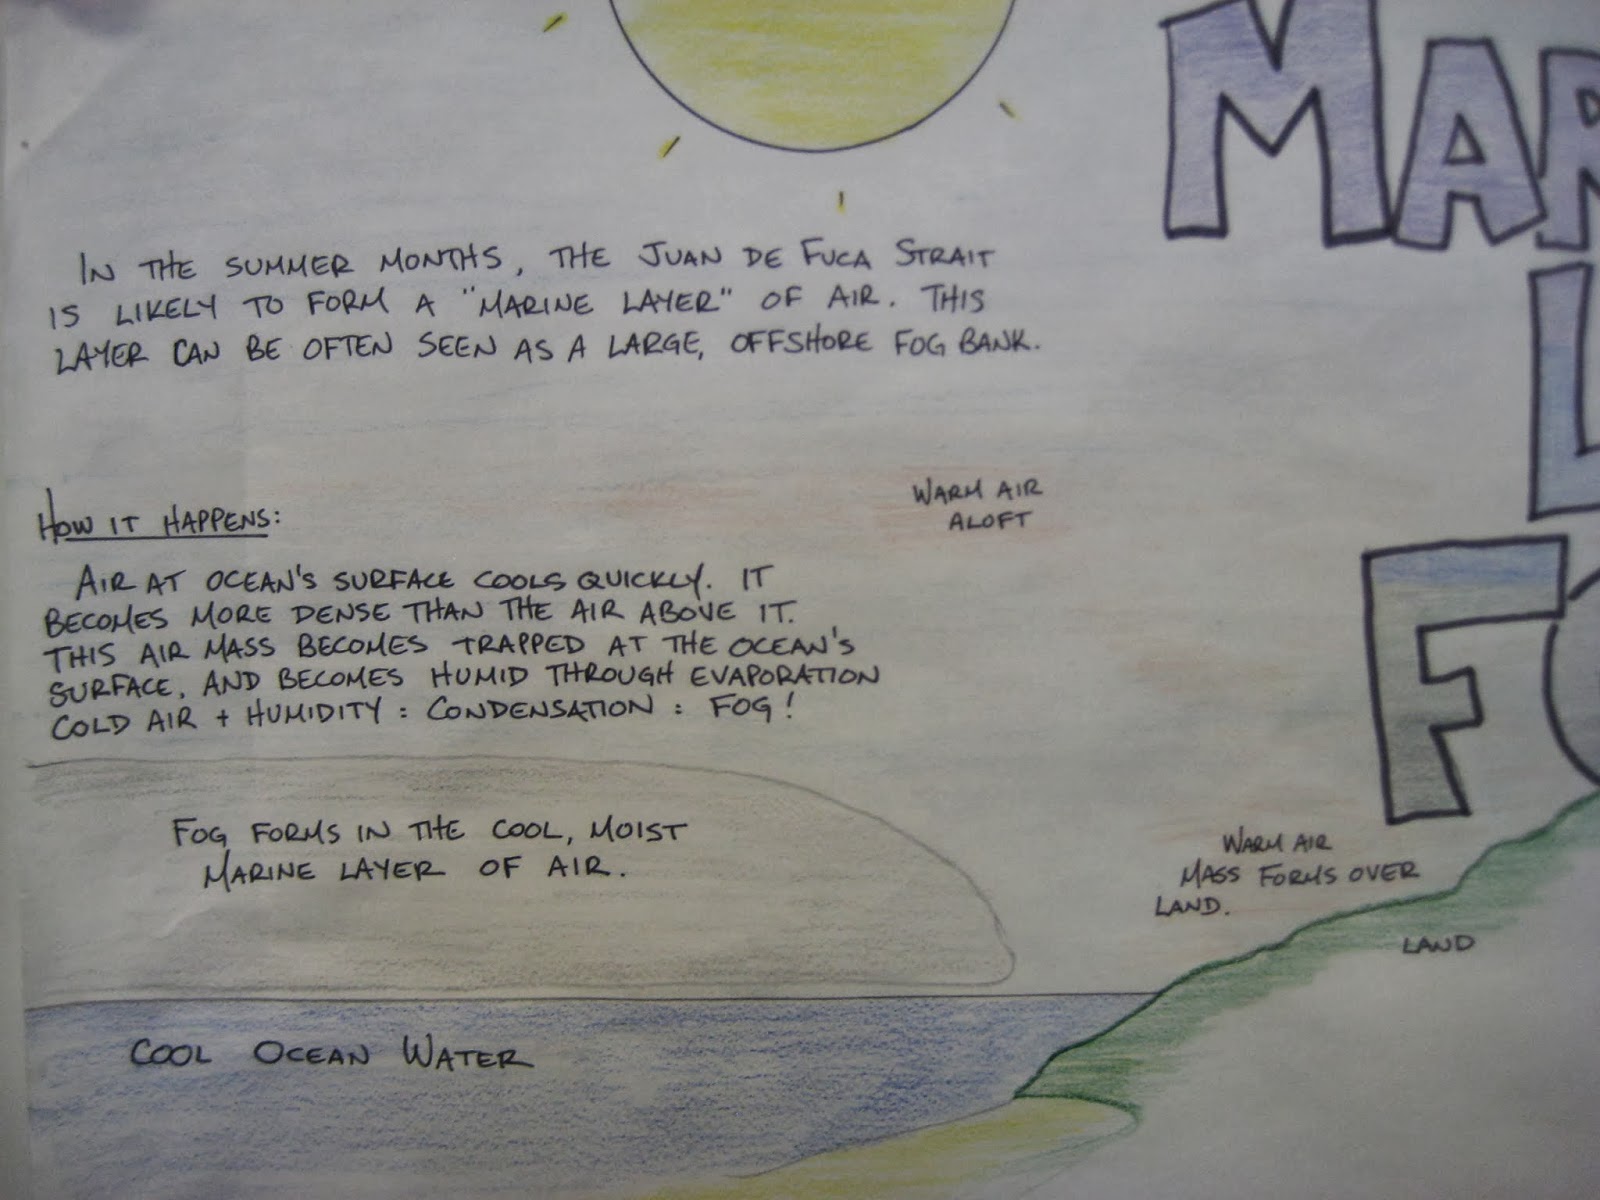 MAR
L
FO
IN THE SUMMER MONTHS, THE JUAN DE FUCA STRAIT
IS LIKELY TO FORM A "MARINE LAYER" OF AIR. THIS
LAYER CAN BE OFTEN SEEN AS A LARGE, OFFSHORE FOG BANK.
WARM AIR
ALOFT
HOW IT HAPPENS:
AIR AT OCEAN'S SURFACE COOLS QUICKLY. IT
BECOMES MORE DENSE THAN THE AIR ABOVE IT.
THIS AIR MASS BECOMES TRAPPED AT THE OCEAN'S
SURFACE, AND BECOMES HUMID THROUGH EVAPORATION
COLD AIR + HUMIDITY = CONDENSATION = FOG!
FOG FORMS IN THE COOL, MOIST
MARINE LAYER OF AIR.
WARM AIR
MASS FORMS OVER
LAND.
LAND
COOL OCEAN WATER